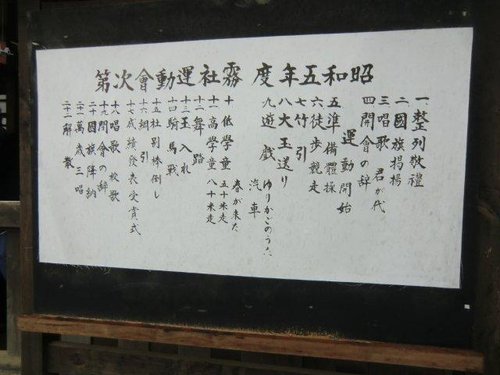 昭和五年度 霧社運動會次第
一 整列敬禮
二 國旗掲揚
三 唱歌 君が代
四 開會の辞
運動開始
五 準備體操
六 徒歩競走
七 竹引
八 大玉送り
九 遊戯 ゆりかごのうた
汽車
春が来た
十 低學童 五十米走
十一 高學童 八十米走
十二 舞踏
十三 玉入れ
十四 騎馬戰
十五 社別棒倒し
十六 綱引
十七 成績發表及賞式
十八 唱歌 校歌
十九 閉會の辞
二十 國旗降納
二十一 萬歳三唱
二十二 解散